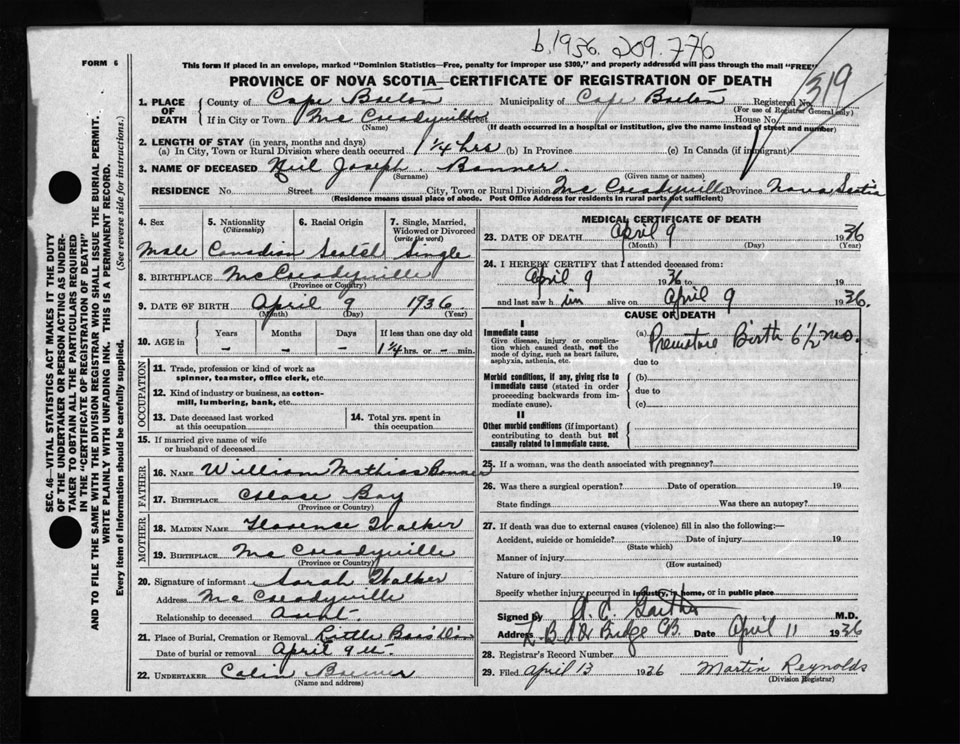 b. 1936. 209.776
FORM 6
This form if placed in an envelope, marked "Dominion Statistics—Free, penalty for improper use $300," and properly addressed will pass through the mail "FREE"
PROVINCE OF NOVA SCOTIA—CERTIFICATE OF REGISTRATION OF DEATH
319
1. PLACE OF DEATH
County of Cape Breton Municipality of Cape Breton Registered No.
(For use of Registrar General only)
If in City or Town Mc Creadyville House No.
(Name) (If death occurred in a hospital or institution, give the name instead of street and number)
2. LENGTH OF STAY (in years, months and days)
(a) In City, Town or Rural Division where death occurred 1 1/4 hrs (b) In Province (c) In Canada (if immigrant)
3. NAME OF DECEASED Neil Joseph Bonner
(Surname) (Given name or names)
RESIDENCE No. Street City, Town or Rural Division Mc Creadyville Province Nova Scotia
(Residence means usual place of abode. Post Office Address for residents in rural parts not sufficient)
4. Sex
Male
5. Nationality
(Citizenship)
Canadian
6. Racial Origin
Scotch
7. Single, Married, Widowed or Divorced
(write the word)
Single
8. BIRTHPLACE Mc Creadyville
(Province or Country)
9. DATE OF BIRTH April 9 1936
(Month) (Day) (Year)
10. AGE in
Years Months Days If less than one day old
- - - 1 1/4 hrs. or - min.
OCCUPATION
11. Trade, profession or kind of work as spinner, teamster, office clerk, etc.
12. Kind of industry or business, as cotton-mill, lumbering, bank, etc.
13. Date deceased last worked at this occupation
14. Total yrs. spent in this occupation
15. If married give name of wife or husband of deceased
FATHER
16. NAME William Mathias Bonner
17. BIRTHPLACE Glace Bay
(Province or Country)
MOTHER
18. MAIDEN NAME Florence Walker
19. BIRTHPLACE Mc Creadyville
(Province or Country)
20. Signature of informant Sarah Walker
Address Mc Creadyville
Relationship to deceased Aunt
21. Place of Burial, Cremation or Removal Little Bras D'or
Date of burial or removal April 9th
22. UNDERTAKER Colin Bonner
(Name and address)
MEDICAL CERTIFICATE OF DEATH
23. DATE OF DEATH April 9 1936
(Month) (Day) (Year)
24. I HEREBY CERTIFY that I attended deceased from:
April 9 1936 to 19
and last saw h im alive on April 9 1936.
CAUSE OF DEATH
I
Immediate cause
Give disease, injury or complication which caused death, not the mode of dying, such as heart failure, asphyxia, asthenia, etc.
(a) Premature Birth 6 1/2 mo.
due to
Morbid conditions, if any, giving rise to immediate cause (stated in order proceeding backwards from immediate cause).
(b)
due to
(c)
II
Other morbid conditions (if important) contributing to death but not causally related to immediate cause.
25. If a woman, was the death associated with pregnancy?
26. Was there a surgical operation? Date of operation 19
State findings Was there an autopsy?
27. If death was due to external causes (violence) fill in also the following:—
Accident, suicide or homicide? Date of injury 19
(State which)
Manner of injury
(How sustained)
Nature of injury
Specify whether injury occurred in industry, in home, or in public place
Signed by M.D.
Address Bridge CB. Date April 11 1936
28. Registrar's Record Number
29. Filed April 13 1936 Martin Reynolds
(Division Registrar)
SEC. 46—VITAL STATISTICS ACT MAKES IT THE DUTY
OF THE UNDERTAKER OR PERSON ACTING AS UNDER-
TAKER TO OBTAIN ALL THE PARTICULARS REQUIRED
IN THE "CERTIFICATE OF REGISTRATION OF DEATH"
AND TO FILE THE SAME WITH THE DIVISION REGISTRAR WHO SHALL ISSUE THE BURIAL PERMIT.
WRITE PLAINLY WITH UNFADING INK. THIS IS A PERMANENT RECORD.
Every item of Information should be carefully supplied. (See reverse side for instructions.)